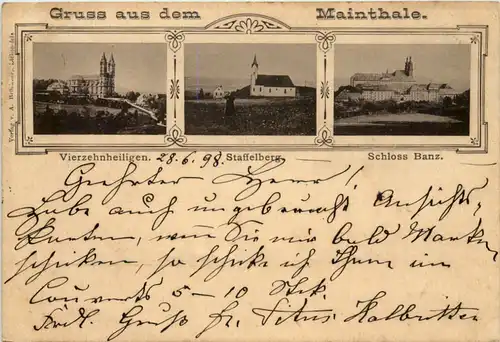 Gruss aus dem Mainthale.
Vierzehnheiligen. 28.6.98. Staffelberg. Schloss Banz.
Geehrter Herr!
Habe auch ungebraucht Ansichts-
karten, wenn Sie mir bald Marken
schicken, so schicke ich Ihnen im
Couverts 5–10 Stk.
Frdl. Gruß Titus Halbritter
Verlag v. A.